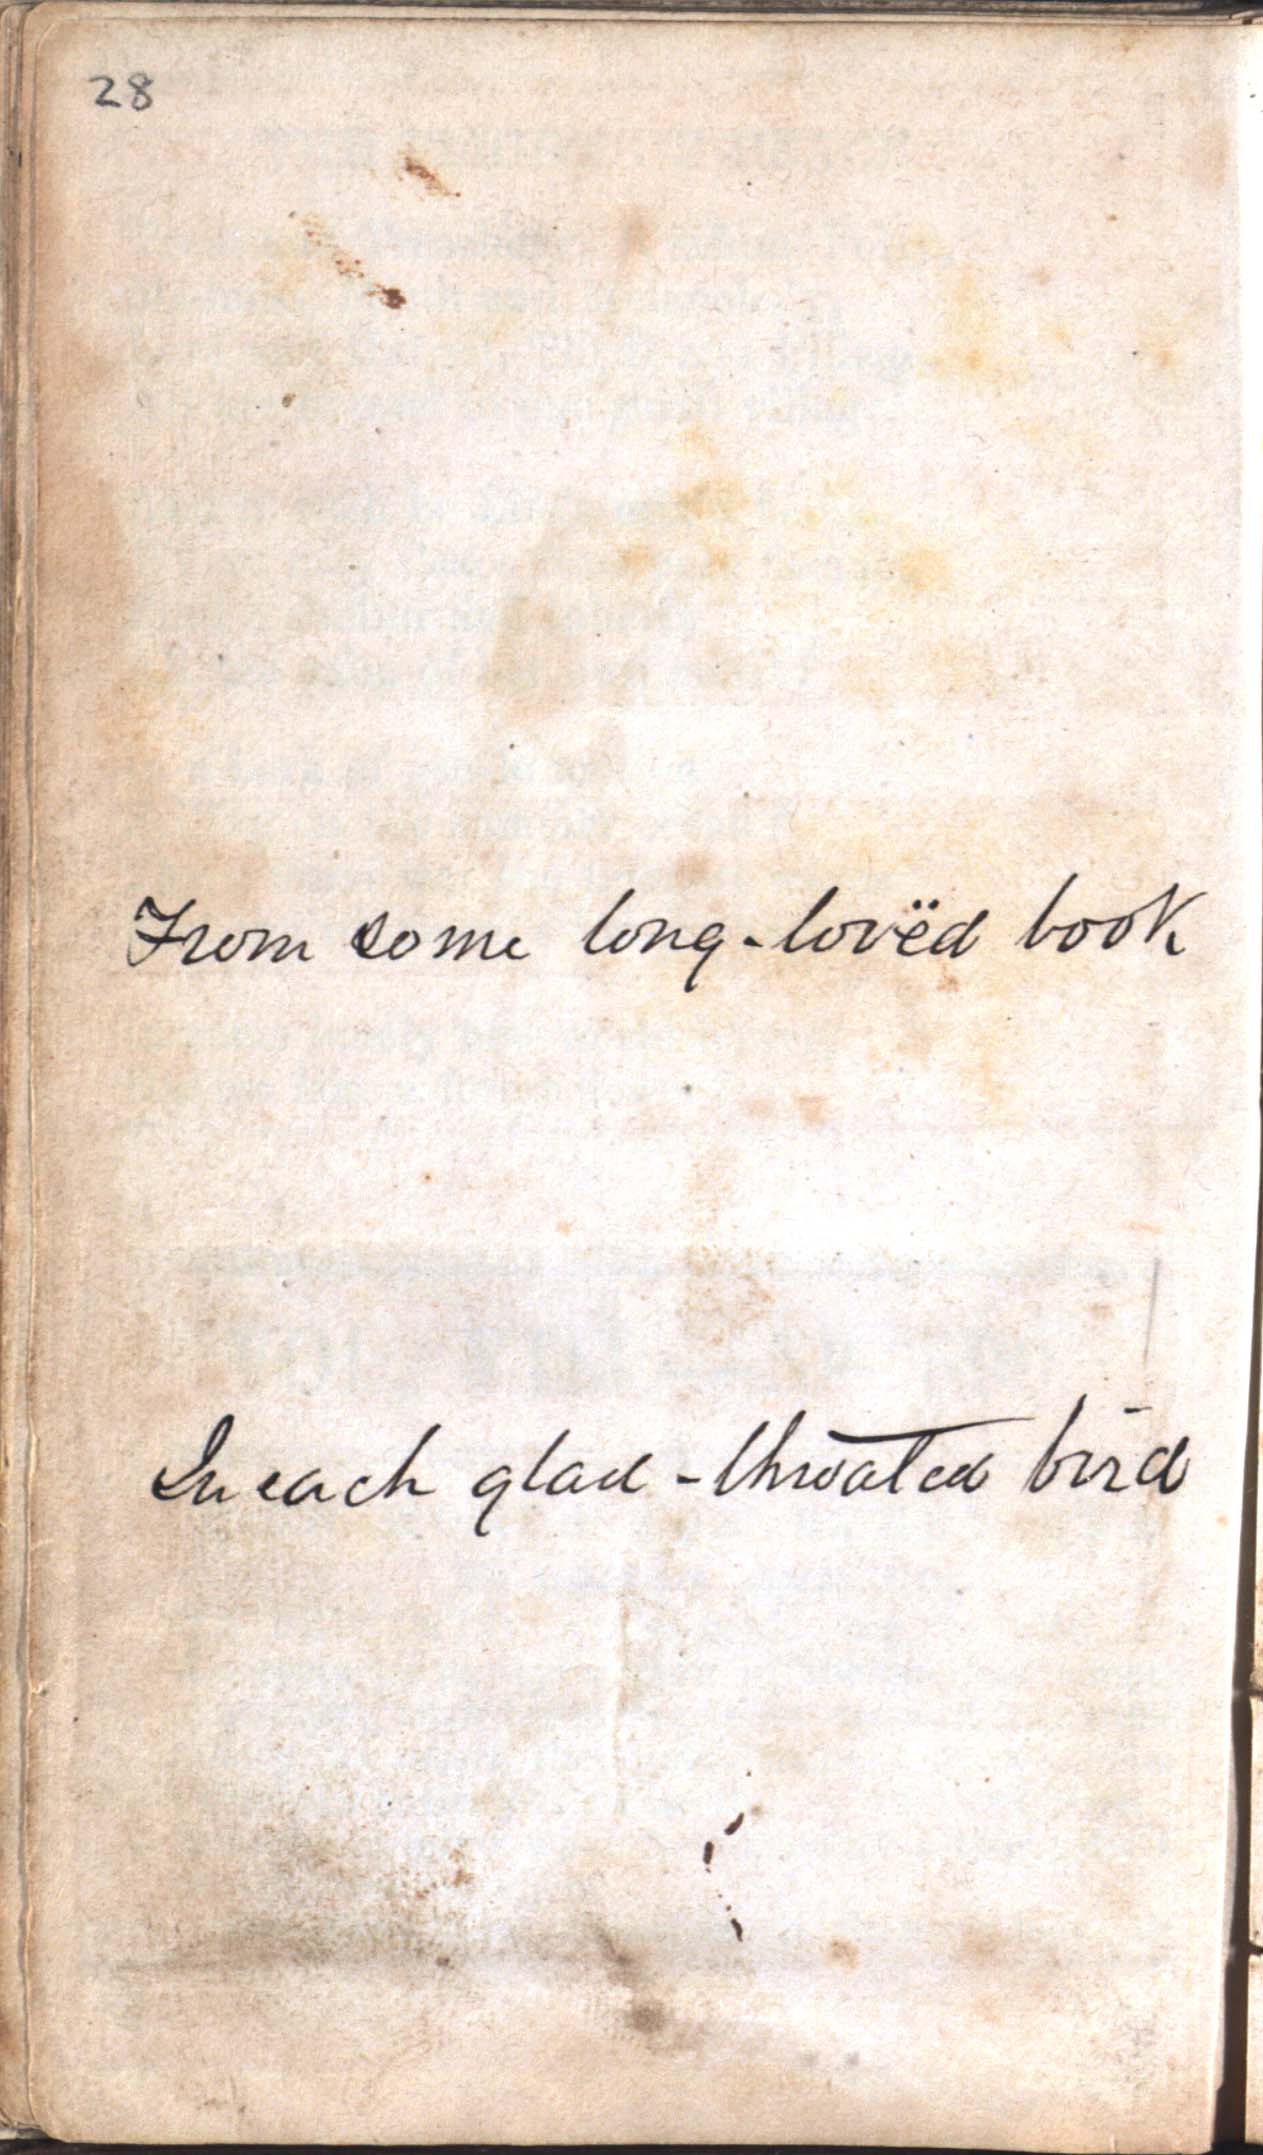 28
From some long-lovëd book
In each glad-throated bird